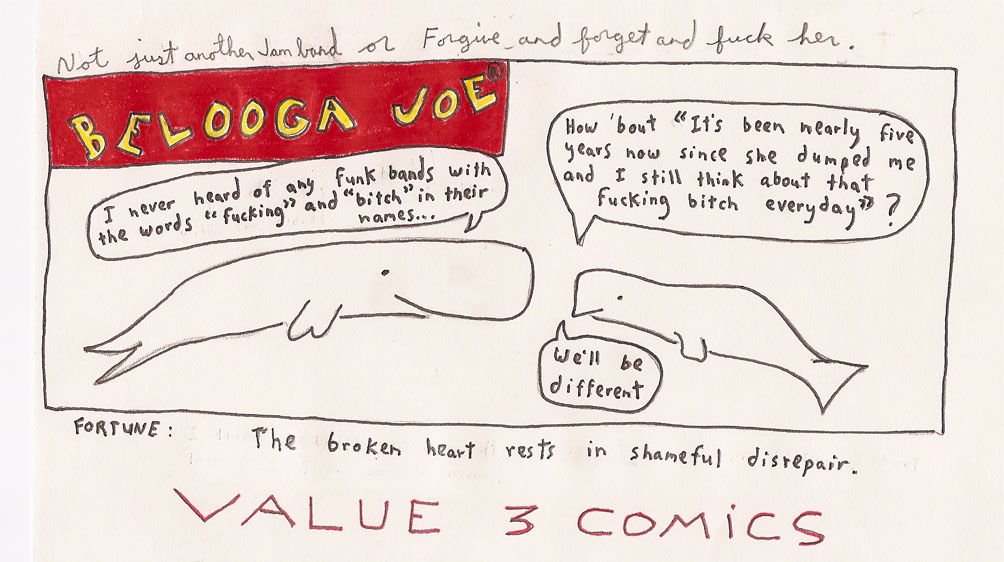 Not just another Jam band or Forgive and forget and fuck her.
BELOOGA JOE®
I never heard of any funk bands with
the words "fucking" and "bitch" in their
names...
How 'bout "It's been nearly five
years now since she dumped me
and I still think about that
fucking bitch everyday"?
We'll be
different
FORTUNE: The broken heart rests in shameful disrepair.
VALUE 3 COMiCS